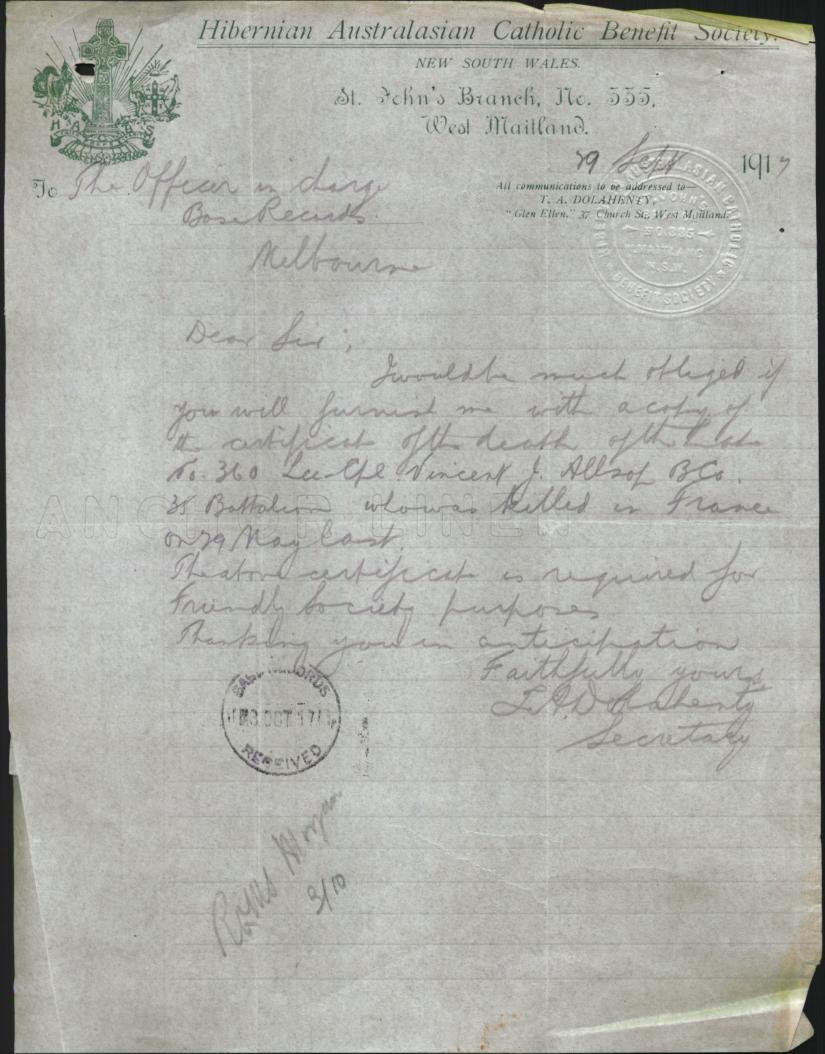 Hibernian Australasian Catholic Benefit Society.
NEW SOUTH WALES.
St. John's Branch, No. 335,
West Maitland.
29 Sept 1917
All communications to be addressed to—
T. A. DOLAHENTY,
"Glen Ellen," 37 Church St., West Maitland
To The Officer in charge
Base Records.
Melbourne
Dear Sir;
I would be much obliged if
you will furnish me with a copy of
the certificate of the death of the late
No. 360 Lce-Cpl. Vincent J. Allsop B Co.
35 Battalion who was killed in France
on 29 May last.
The above certificate is required for
Friendly Society purposes
Thanking you in anticipation
Faithfully yours
T. A. Dolahenty
Secretary
BASE RECORDS
3 OCT 17
RECEIVED
3/10
ANGLER LINEN
H A C B S
AUSTRALASIAN CATHOLIC
BENEFIT SOCIETY
ST JOHN'S
NO. 335
W. MAITLAND
N.S.W.